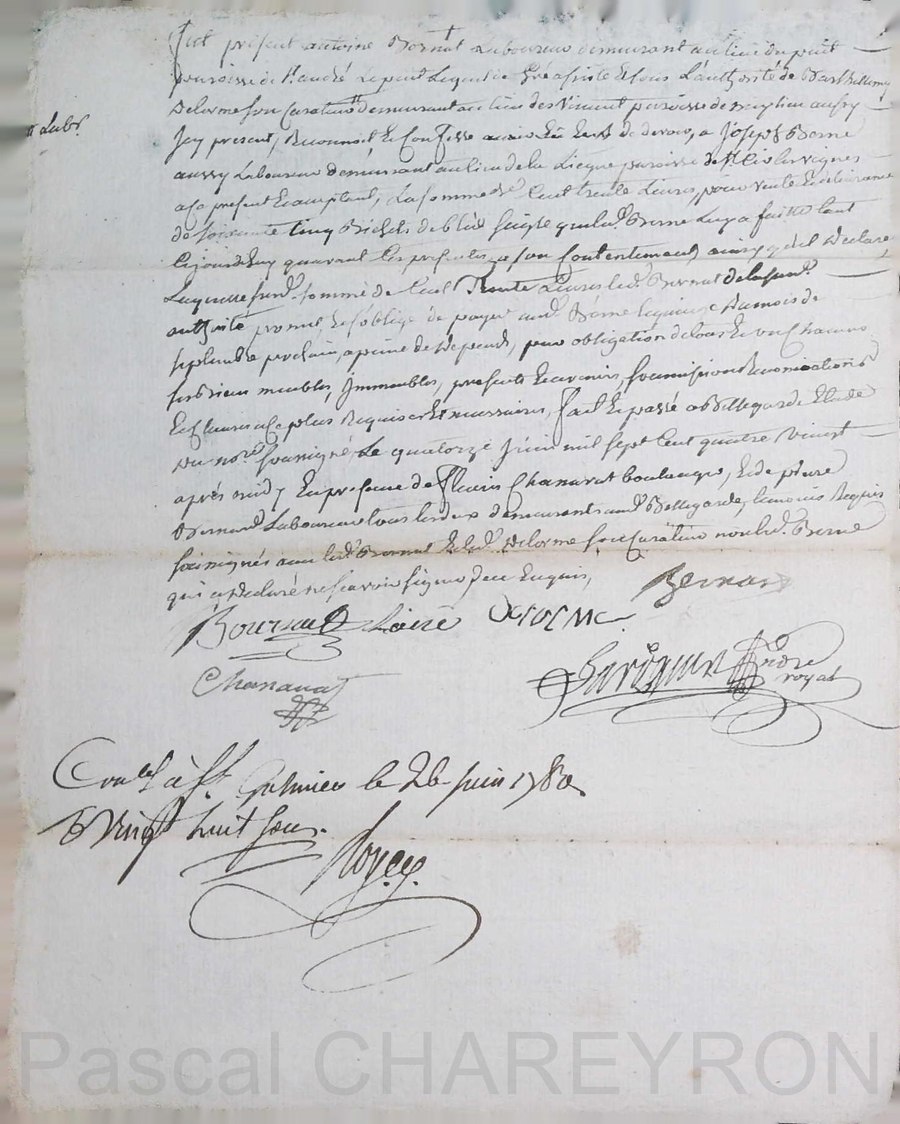 fut présent antoine Bornat Laboureur demeurant au lieu du puit
paroisse de St andré Le puit Lequel de gré assisté et sous L'authorité de Barthelemy
Delorme son Curateur demeurant au lieu des Vincent paroisse de aussy
Lab.r
Icy present, Reconnoit et Confesse avoir et devoir, a Joseph Berne
aussy Laboureur demeurant au lieu de la paroisse de les vignes
a ce present et acceptant, La somme de Cent trente Livres, pour vente et délivrance
de soixante Cinq Bichets de bled seigle que led. Berne Luy a faitte Cent
ce jourd'huy avant Les presentes a son Contentement ainsy qu'il Declare
Laquelle sus.d somme de Cent Trente Livres led. Bornat de la sus.d
authorité promet et s'oblige de payer aud. Berne le quinze du mois de
septembre prochain, a peine de Depends, par obligation de tous et un Chacuns
ses biens meubles, Immeubles, presents et avenirs, soumissions Renonciations
et Clauses a ce plus Requises et necessaires, fait et passé a Bellegarde Etude
du no.re soussigné, Le quatorze Juin mil sept Cent quatre vingt
après midy En presence de Chanavat boulanger, et de pierre
Bernard Laboureur tous les deux demeurants aud. Bellegarde, temoins Requis
soussignés avec led. Bornat et led. Delorme son Curateur non led. Berne
qui a Declaré ne scavoir signer de ce Enquis,
Bernard
Delorme
Chanavat
royal
Con.lé à St. Galmier le 26 juin 1780
R vingt huit sous.